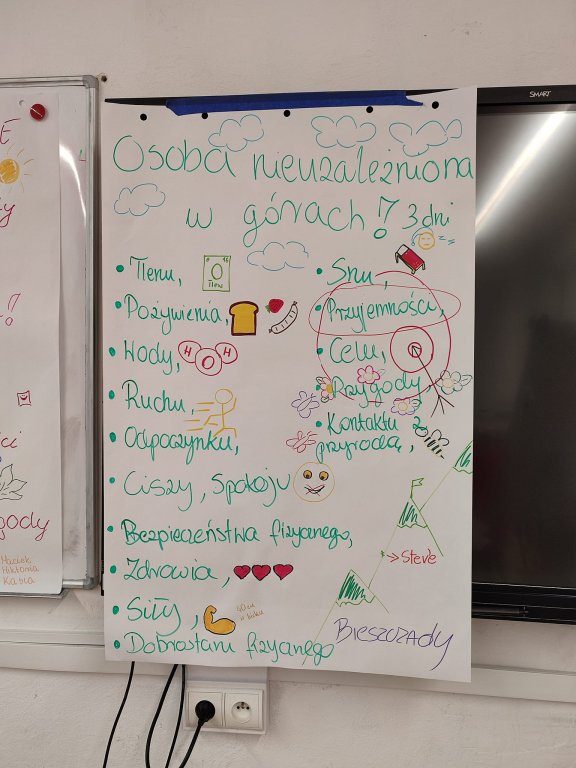 SMART
Osoba nieuzależniona
w górach! 3 dni
• Tlenu,
O
tlen
• Pożywienia,
• Wody, H O H
• Ruchu,
• Odpoczynku,
• Ciszy, Spokoju
• Bezpieczeństwa fizycznego,
• Zdrowia,
• Siły,
40 cm
w biku
• Dobrostanu fizycznego
• Snu,
• Przyjemności,
• Celu,
• Przygody,
• Kontaktu z
przyrodą,
→ Steve
BIESZCZADY
Maciek
Wiktoria
Kasia